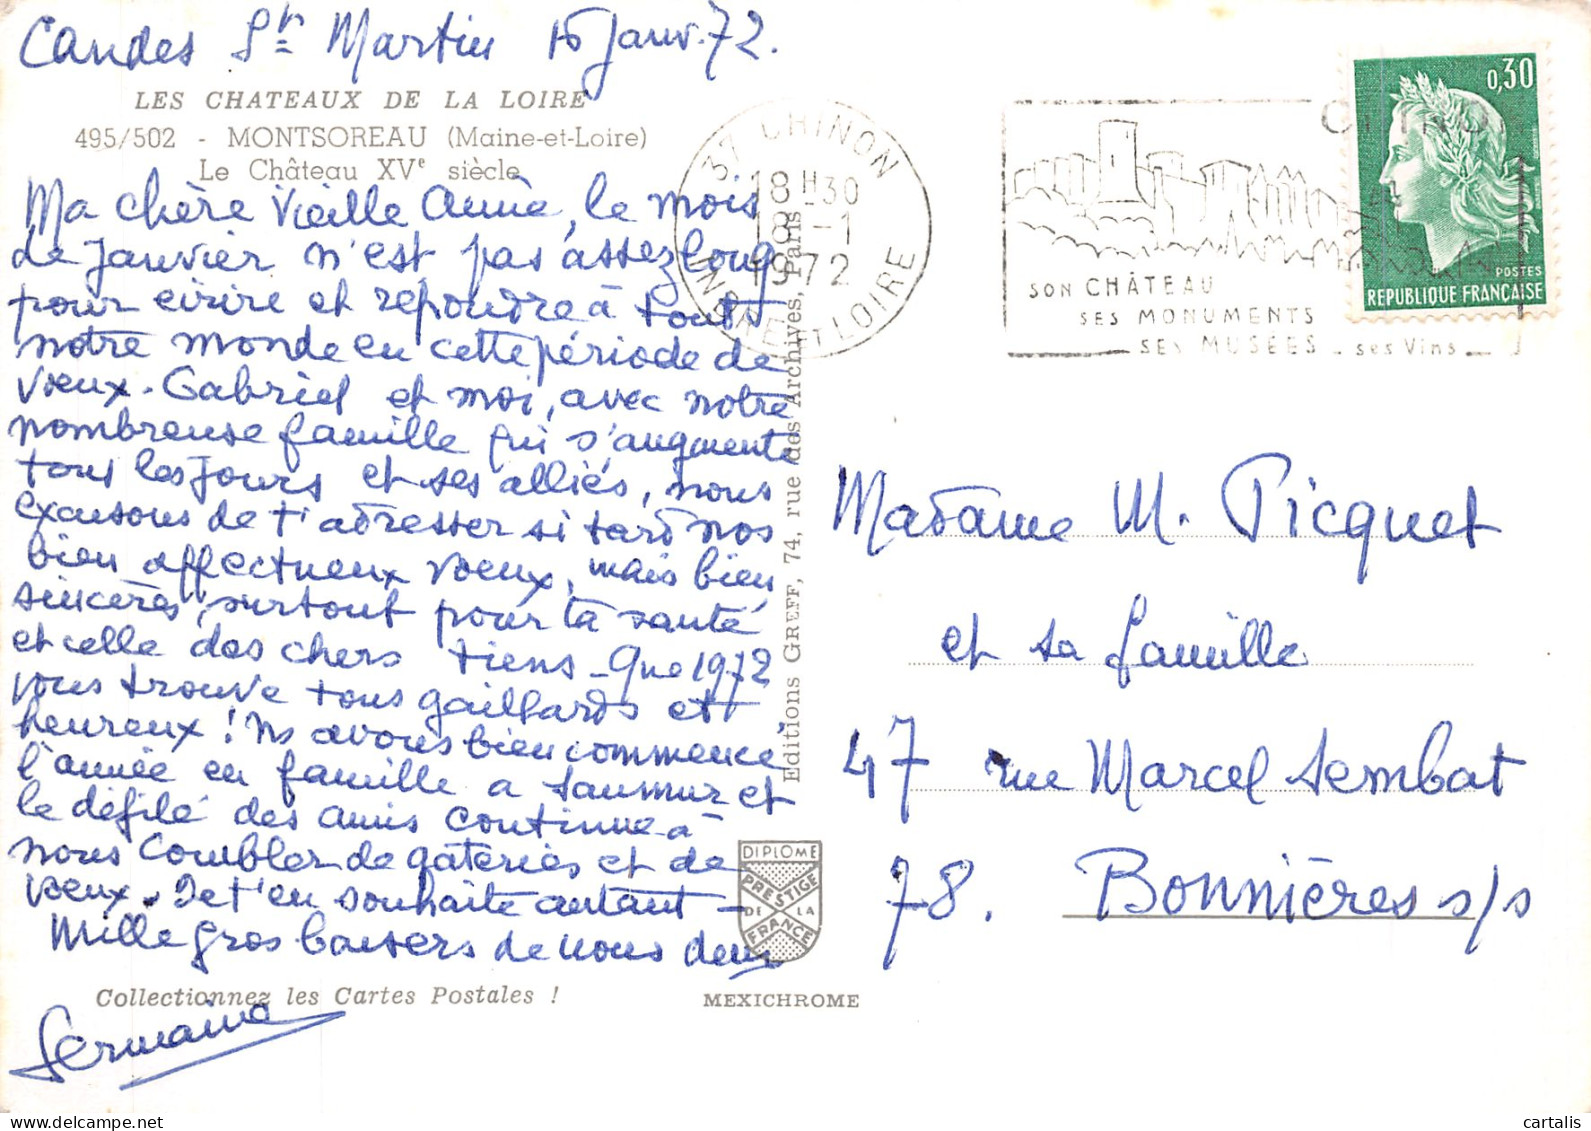 Candes St Martin 16 Janv. 72.
LES CHATEAUX DE LA LOIRE
495/502 - MONTSOREAU (Maine-et-Loire)
Le Château XVe siècle
Ma chère Vieille Amie, le mois
de Janvier n'est pas assez long
pour écrire et répondre à tout
notre monde en cette période de
vœux. Gabriel et moi, avec notre
nombreuse famille qui s'augmente
tous les jours et ses alliés, nous
excusons de t'adresser si tard nos
bien affectueux vœux, mais bien
sincères, surtout pour ta santé
et celle des chers tiens - Que 1972
vous trouve tous gaillards et
heureux ! Ns avons bien commencé
l'année en famille a Saumur et
le défilé des amis continue à
nous combler de gateries et de
vœux. Je t'en souhaite autant -
Mille gros baisers de nous deux
Germaine
Collectionnez les Cartes Postales !
MEXICHROME
Editions GREFF, 74, rue des Archives, Paris
DIPLOME
PRESTIGE
DE LA
FRANCE
37 CHINON
18H30
18 -1
1972
INDRE ET LOIRE
CHINON
SON CHÂTEAU
SES MONUMENTS
SES MUSÉES - ses Vins
0,30
POSTES
REPUBLIQUE FRANÇAISE
Madame M. Picquet
et sa famille
47 rue Marcel Sembat
78. Bonnières s/s
cartalis
www.delcampe.net